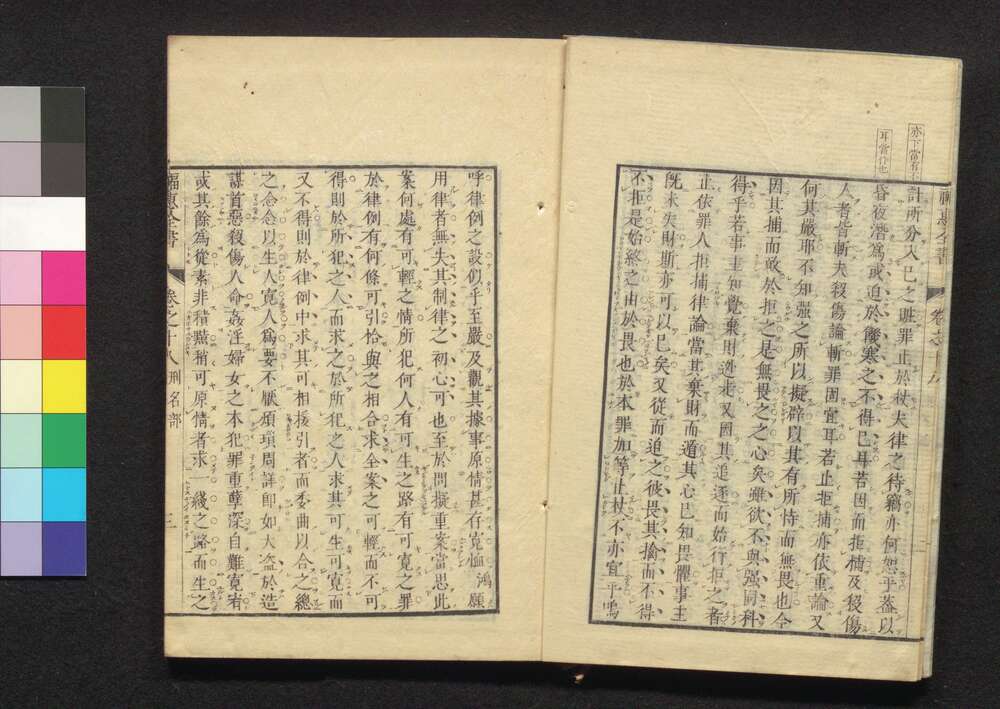 亦下當有
耳當作也
計所分入已之賍罪止於杖夫律之待竊亦何恕乎盜以
昏夜潛爲或迫於饑寒之不得已耳若因而拒捕及殺傷
人者皆斬夫殺傷論斬罪固宜耳若止拒捕亦依重論又
何其嚴耶不知强之所以擬辟以其有所恃而無畏也今
因其捕而敢於拒之是無畏之之心矣雖欲不與强同科
得乎若事主知覺棄財逃走又因其追逐而始行拒之者
止依罪人拒捕律論當其棄財而遁其心已知畏懼事主
旣未失財斯亦可以已矣又從而追之彼畏其擒而不得
不拒是始終之由於畏也於本罪加等止杖不亦宜乎嗚
呼律例之設似乎至嚴及觀其據事原情甚存寬恤鴻願
用律者無失其制律之初心可也至於問擬重案當思此
案何處有可輕之情所犯何人有可生之路有可寬之罪
於律例有何條可引恰與之相合求全案之可輕而不可
得則於所犯之人而求之於所犯之人求其可生可寬而
又不得則於律例中求其可相援引者而委曲以合之總
之念念以生人寬人爲要不厭煩瑣問詳卽如大盜於造
謀首惡殺傷人命姦淫婦女之本犯罪重孽深自難寬宥
或其餘爲從素非積黠稍可原情者求一綫之路而生之
福惠全書 卷之十八 刑名部 三